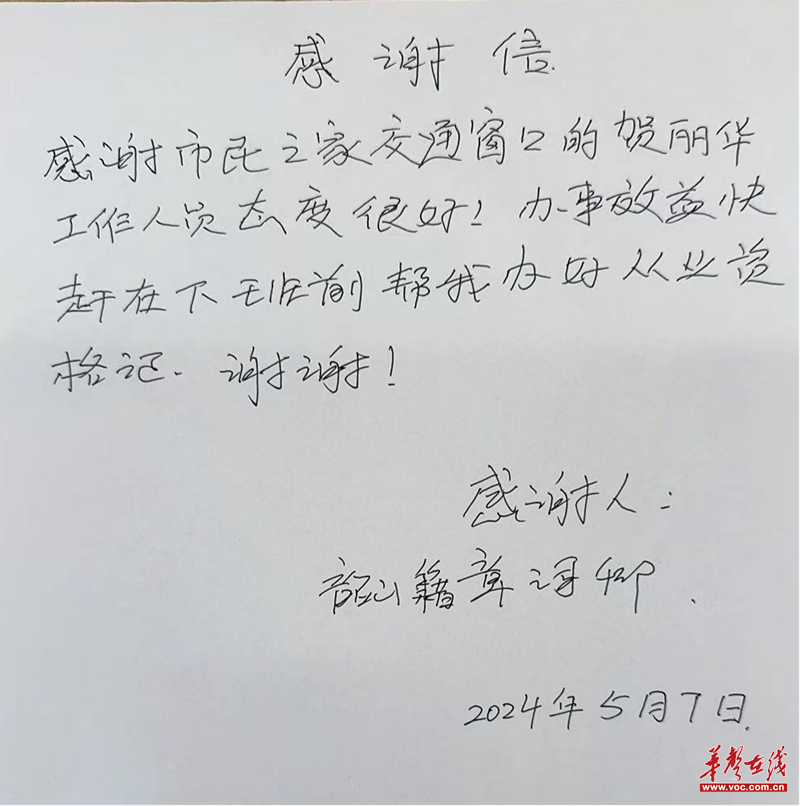 感谢信
感谢市民之家交通窗口的贺丽华
工作人员态度很好！办事效益快
赶在下班前帮我办好从业资
格记．谢谢！
感谢人：
韶山籍章
2024年5月7日
华声在线
www.voc.com.cn